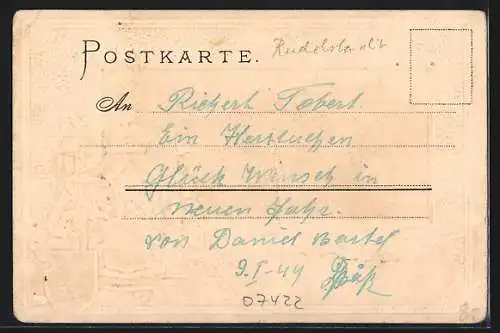 POSTKARTE.
Rudolstadt
An Richert Tobert.
Ein Herzlichen
Glück Winsch in
neuen Jahr.
von Daniel Bartel
9.I-44
07422